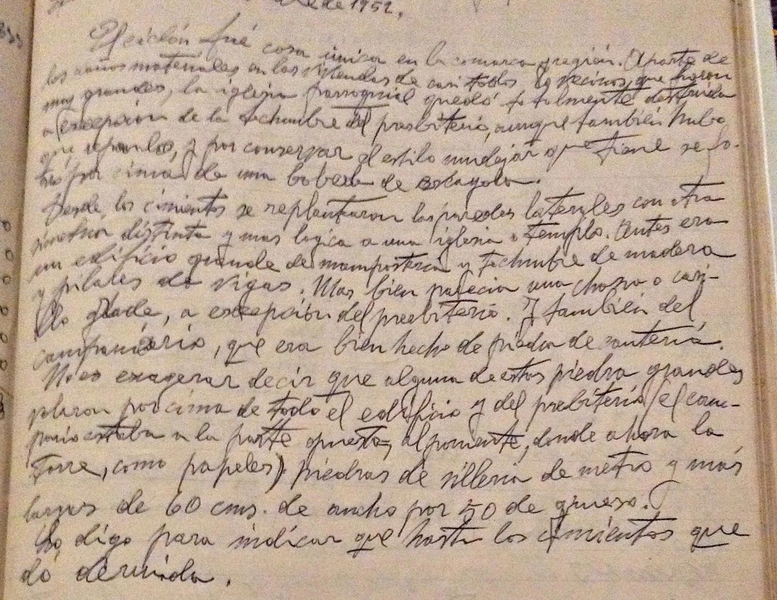 de 1952.
El ciclón fué cosa única en la comarca y región. Aparte de
los daños materiales en las viviendas de casi todos los vecinos, que fueron
muy grandes, la iglesia parroquial quedó totalmente destruida
a excepción de la techumbre del presbiterio, aunque también hubo
que repararlo, y por conservar el estilo mudejar que tiene se
por cima de una bobeda de escayola.
Desde los cimientos se replantearon las paredes laterales con otra
simetria distinta y mas logica a una iglesia o templo. Antes era
un edificio grande de mamposteria y techumbre de madera
y pilares de vigas. Mas bien parecia una choza o
grande, a excepción del presbiterio. Y también del
campanario, que era bien hecho de piedra de cantería.
No es exagerar decir que alguna de estas piedra grandes
volaron por cima de todo el edificio y del presbiterio (el cam-
panario estaba a la parte opuesta, al poniente, donde ahora la
torre, como papeles) piedras de silleria de metro y más
largas de 60 cms. de ancho por 50 de grueso.
Lo digo para indicar que hasta los cimientos que
dó derruida.